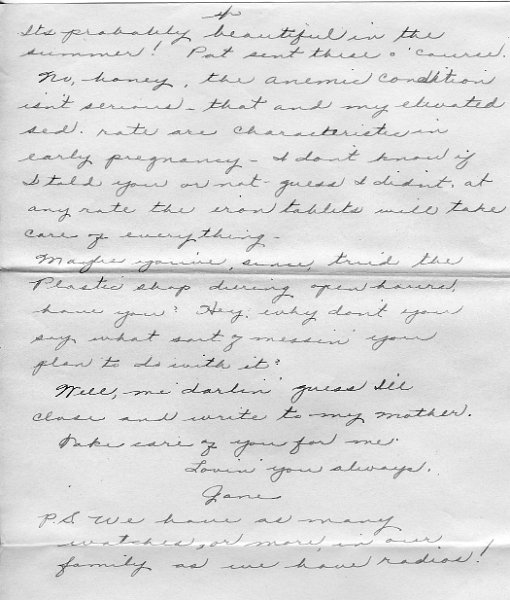 4
Its probably beautiful in the
summer! Pat sent these o' course.
No, honey, the anemic condition
isn't serious - that and my elevated
sed. rate are characteristic in
early pregnancy - I don't know if
I told you or not - guess I didn't, at
any rate the iron tablets will take
care of everything -
Maybe you've, since, tried the
Plastic shop during open hours,
have you? Hey, why don't you
say what sort of messin' you
plan to do with it?
Well, me darlin' guess I'll
close and write to my mother.
Take care of you for me.
Lovin' you always,
Jane
P.S. We have as many
watches, or more, in our
family as we have radios!